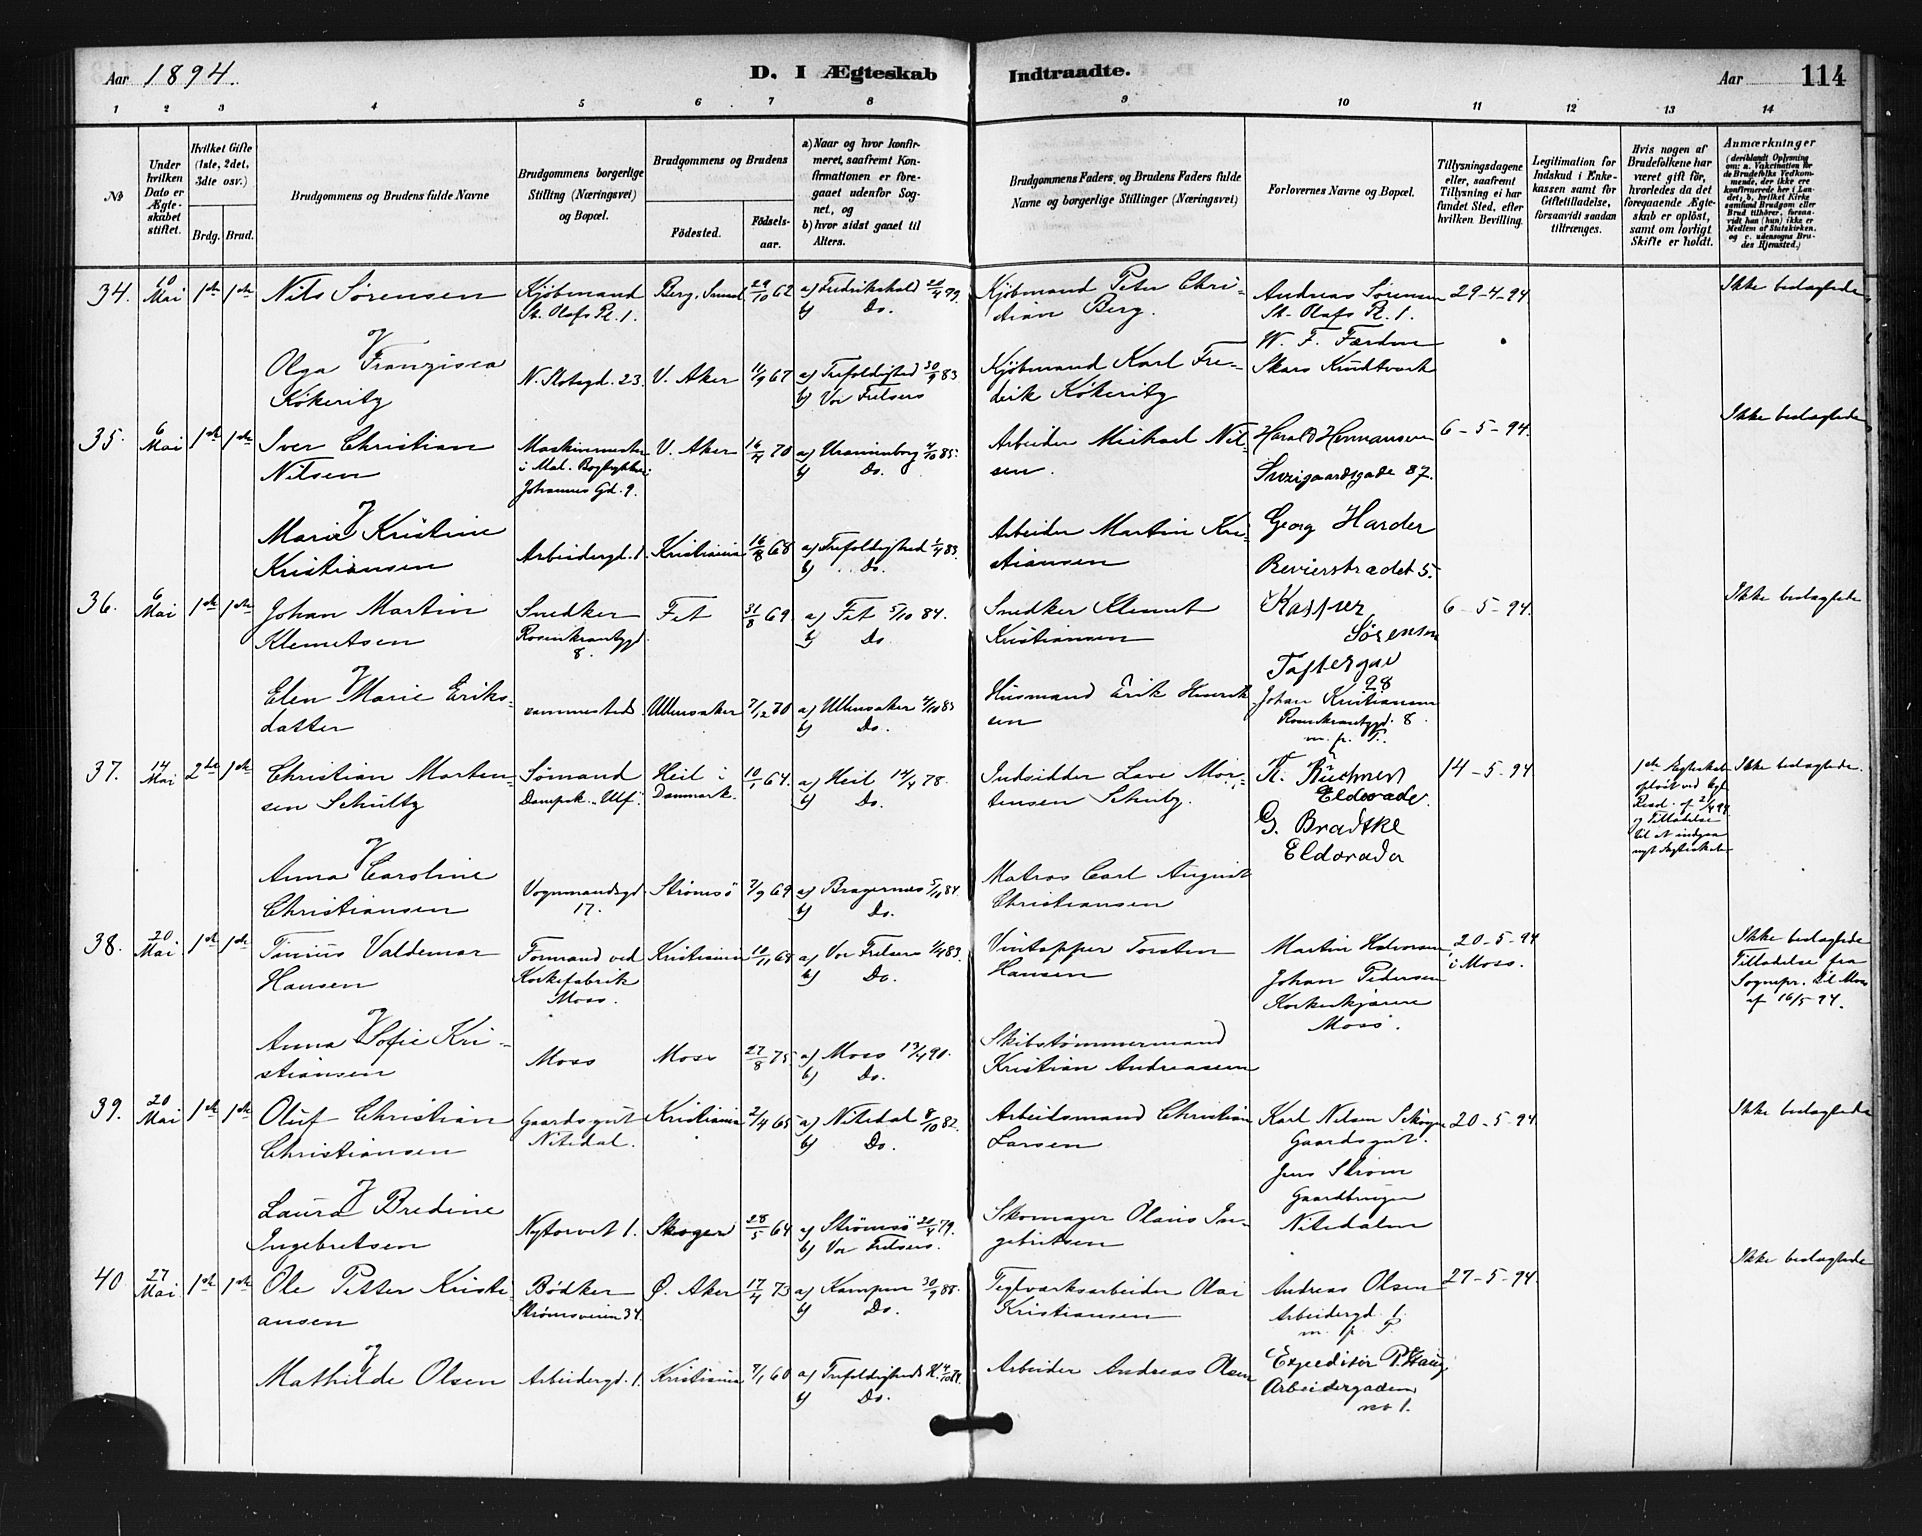 Aar 1894.
D. I Ægteskab Indtraadte.
Aar 114
1 2 3 4 5 6 7 8 9 10 11 12 13 14
№
Under hvilken Dato er Ægteskabet stiftet.
Hvilket Gifte (1ste, 2det, 3die osv.)
Brdg. Brud.
Brudgommens og Brudens fulde Navne
Brudgommens borgerlige Stilling (Næringsvei) og Bopæl.
Brudgommens og Brudens
Fødested.
Fødselsaar.
a) Naar og hvor konfirmeret, saafremt Konfirmationen er foregaaet udenfor Sognet, og
b) hvor sidst gaaet til Alters.
Brudgommens Faders, og Brudens Faders fulde Navne og borgerlige Stillinger (Næringsvei)
Forlovernes Navne og Bopæl.
Tillysningsdagene eller, saafremt Tillysning ei har fundet Sted, efter hvilken Bevilling.
Legitimation for Indskud i Enkekassen samt for Giftetilladelse, forsaavidt saadan tiltrænges.
Hvis nogen af Brudefolkene har været gift før, hvorledes da det foregaaende Ægteskab er opløst, samt om lovligt Skifte er holdt.
Anmærkninger
(deriblandt Oplysning om: a. Vakcination for de Brudefolks Vedkommende, der ikke ere konfirmerede her i Landet; b. hvilket Kirkesamfund Brudgom eller Brud tilhører, forsaavidt han (hun) ikke er Medlem af Statskirken, og c. udensogns Brudes Hjemsted.)
34. 10 Mai 1ste 1ste Nils Sörensen
Kjöbmand St. Olafs Pl. 1.
29/10 62 a) Fredrikshald 79.
b) Do.
Kjöbmand Peter Christian Berg.
Andreas Sørensen St. Olafs Pl. 1.
29-4-94
Ikke beslægtede
og
Olga Franzisca Kökeritz
N. Slotsgd. 23. V. Aker 11/9 67 a) Trefoldighed 30/9 83
b) Vor Frelsers
Kjöbmand Karl Fredrik Kökeritz
W. F.
35. 6 Mai 1ste 1ste Iver Christian Nilsen
Johannes Gd. 9.
V. Aker 16/4 70 a) Uranienborg 4/10 85.
b) Do.
Arbeider Michael Nilsen.
Harald Hermansen
Sweigaardsgade 87.
6-5-94.
Ikke beslægtede
og
Marie Kristine Kristiansen
Arbeidergd. 1. Kristiania 16/8 68 a) Trefoldighed 83.
b) Do.
Arbeider Martin Kristiansen
Georg Harder
Revierstrædet 5.
36. 6 Mai 1ste 1ste Johan Martin Klemetsen
Snedker Rosenkrantzgd. 8.
Fet 31/8 69. a) Fet 5/10 84.
b) Do.
Snedker Klemet Kristiansen
Kasper Sörensen
6-5-94.
Ikke beslægtede
og
Elen Marie Eriksdatter
sammesteds Ullensaker 7/12 70 a) Ullensaker 4/10 85
b) Do.
Husmand Erik Henriksen
28
Johan Kristiansen
Rosenkrantzgd. 8
m. p. P.
37. 14 Mai 2det 1ste Christian Mortensen Schultz
Sömand Dampsk. "Ulf".
Heil i Danmark.
10/1 64. a) Heil 14/4 78.
b) Do.
Indsidder Lave Mortensen Schultz.
Eldorado.
14-5-94
1ste Ægteskab opløst ved kgl. Resol. af
og Tilladelse til at indgaa nyt Ægteskab
Ikke beslægtede.
og
Anna Caroline Christiansen
Vognmandsgd. 17.
Strömsö 7/9 69 a) Bragernæs 5/10 84.
b) Do.
Matros Carl August Christiansen
G. Bradtke
Eldorado
38. 20 Mai 1ste 1ste Tinius Valdemar Hansen
Formand ved Korkefabrik Moss.
Kristiania 10/11 68 a) Vor Frelsers 83.
b) Do.
Vintapper Torsten Hansen
Martin Halvorsen
Johan Pedersen
Moss.
20-5-94 i Moss.
Ikke beslægtede
Tilladelse fra Sognepr. til Moss af 16/5 94.
og
Anna Sofie Kristiansen
Moss Moss 27/8 75. a) Moss 13/4 90.
b) Do.
Skibstømmermand Kristian Andreassen
39. 20 Mai 1ste 1ste Oluf Christian Christiansen
Gaardsgut Nitedal.
Kristiania 2/4 65 a) Nitedal 8/10 82.
b) Do.
Arbeidsmand Christian Larsen
Karl Nilsen
Gaardsgut.
20-5-94.
Ikke beslægtede
og
Laura Bredine Ingebretsen
Nytorvet 1. Skoger 28/5 64 a) Strömsö 20/4 79.
b) Vor Frelsers.
Skomager Olaus Ingebretsen
Jens Strøm
Gaardbruger
Nitedalen
40. 27 Mai 1ste 1ste Ole Petter Kristiansen
Bödker Strömsveien 34.
Ø. Aker 17/4 73 a) Kampen 30/9 88.
b) Do.
Teglværksarbeider Olai Kristiansen
Andreas Olsen
Arbeidergd. 1.
m. p. P.
27-5-94.
Ikke beslægtede
og
Mathilde Olsen
Arbeidergd. 1. Kristiania 7/1 60 a) Trefoldigheds K.
b) Do.
Arbeider Andreas Olsen
Expeditör P. Haug
Arbeidergaden no 1.